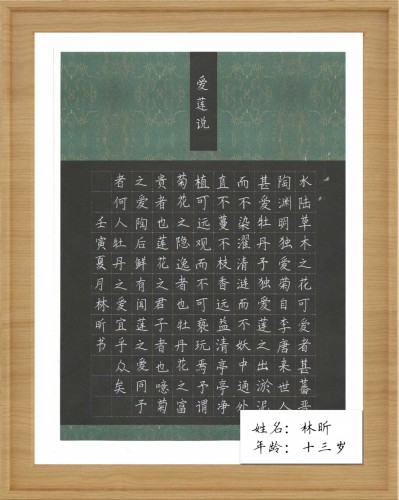 爱莲说
水陆草木之花可爱者甚蕃晋
陶渊明独爱菊自李唐来世人
甚爱牡丹予独爱莲之出淤泥
而不染濯清涟而不妖中通外
直不蔓不枝香远益清亭亭净
植可远观而不可亵玩焉予谓
菊花之隐逸者也牡丹花之富
贵者也莲花之君子者也噫菊
之爱陶后鲜有闻莲之爱同予
者何人牡丹之爱宜乎众矣
壬寅夏月林昕书
姓名：林昕
年龄：十三岁